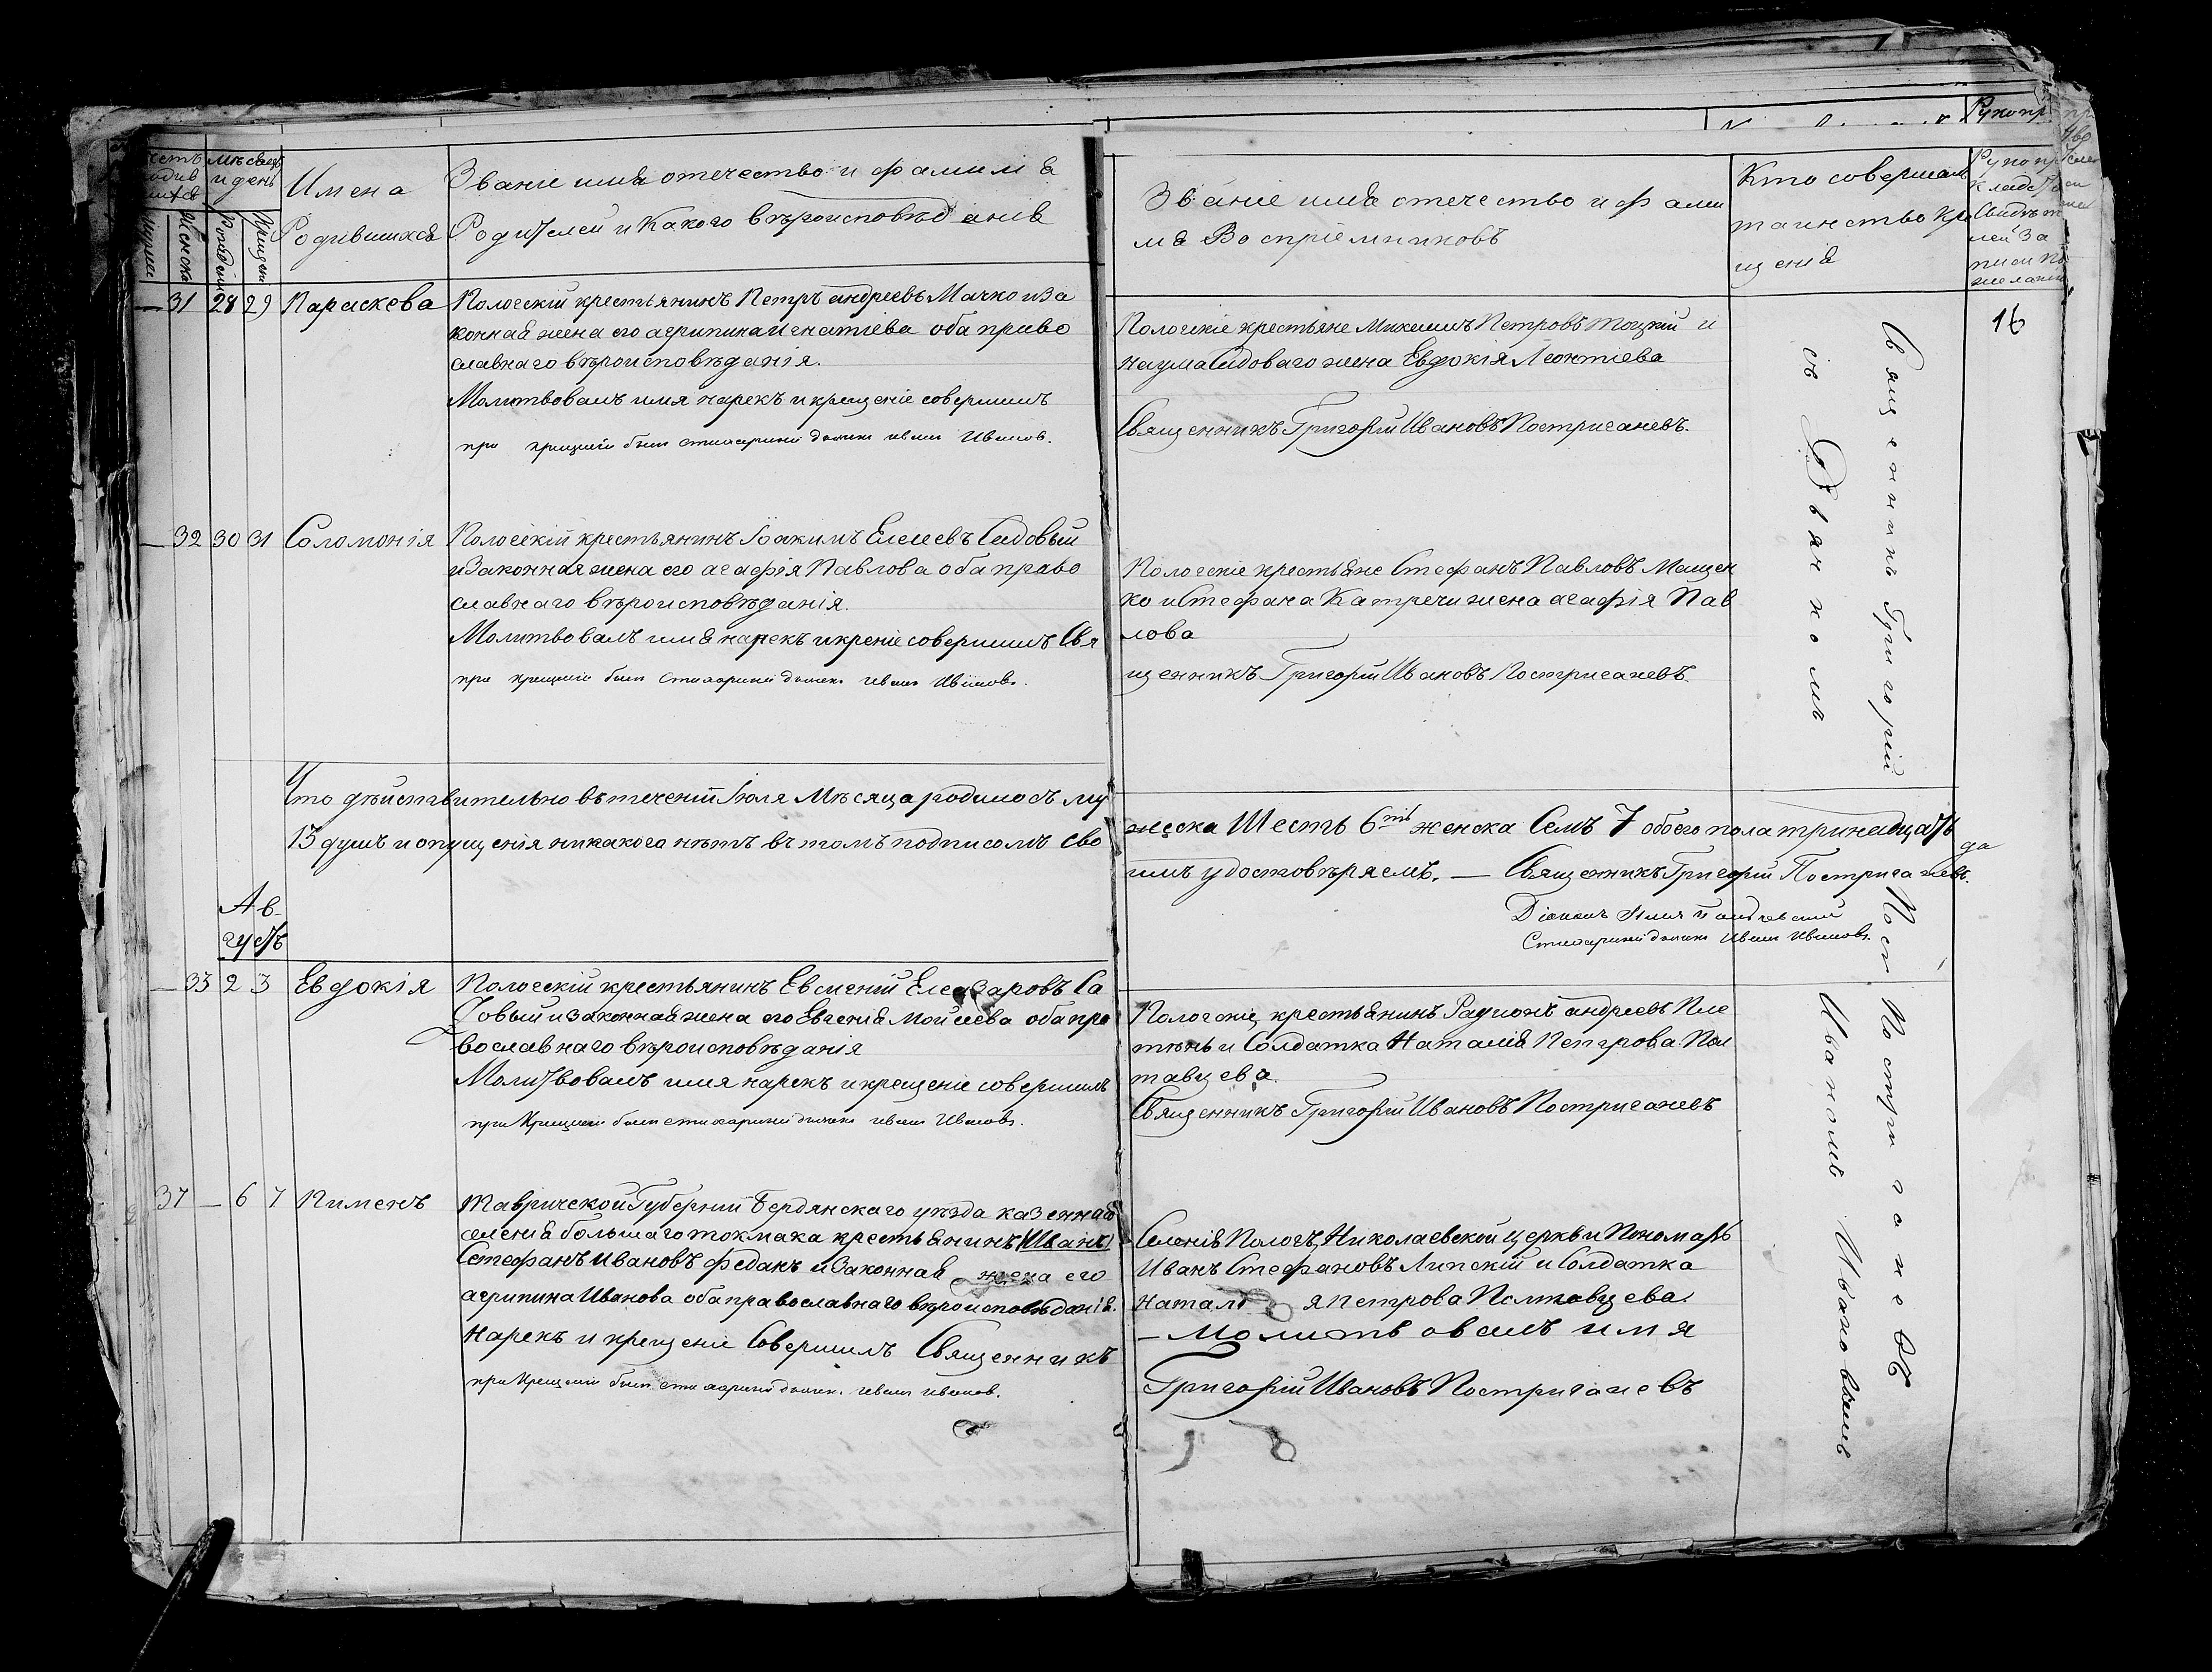 Рукопр
мѣсяцъ
и день
Имена
Родившихся
Рожденія
Крещенія
Женска
Званіе имя отечество и фамилія
Родителей и какого вѣроисповѣданія
Званіе имя отечество и фами
лія Воспріемниковъ
Кто совершалъ
таинство кре
щенія
—31 28 29 Параскева
Пологскій крестьянинъ Петръ андреевъ Мачко и за
конная жена его агрипина игнатіева оба право
славнаго вѣроисповѣданія.
Молитвовалъ имя нарекъ и крещеніе совершилъ
при крещеніи былъ стихарный дьячекъ иванъ Ивановъ.
Пологскіе крестьяне Михаилъ Петровъ Тоцкій и
наума Садоваго жена Евдокія Леонтіева
Священникъ Григорій Ивановъ Постригачевъ.
16
—32 30 31 Соломонія
Пологскій крестьянинъ Іоакимъ Елеиевъ Садовый
и законная жена его агафія Павлова оба право
славнаго вѣроисповѣданія.
Молитвовалъ имя нарекъ и креніе совершилъ Свя
при крещеніи былъ стихарный дьячекъ иванъ Ивановъ.
Пологскіе крестьяне Стефанъ Павловъ Мащен
ко и Стефана Катречи жена агафія Пав
лова
щенникъ Григорій Ивановъ Постригачевъ.
Священникъ Григорій
съ Діякономъ
Что дѣйствительно въ теченіи Іюля Мѣсяца родилось му
жеска Шесть 6ть женска Семъ 7 обоего пола тринадцать
13 душъ и опущенія никакого нѣтъ въ томъ подписомъ сво
имъ удостовѣряемъ. — Священникъ Григорій Постригачевъ.
Діаконъ
Стихарный дьячекъ Иванъ Ивановъ.
Ав
густъ
—33 2 3 Евдокія
Пологскій крестьянинъ Евсмений Елеазаровъ Са
довый и законная жена его Евгенія Мойсеева оба пра
вославнаго вѣроисповѣданія
Молитвовалъ имя нарекъ и крещеніе совершилъ
при крещеніи былъ стихарный дьячекъ иванъ Ивановъ.
Пологскіе крестьянинъ Радионъ андреевъ Пле
тѣнь и Солдатка Наталія Петрова Пол
тавцева.
Священникъ Григорій Ивановъ Постригачевъ
37 — 6 7 Пименъ
Таврической Губерніи Бердянскаго уѣзда казеннаго
селенія большаго токмака крестьянинъ (Иванъ)
Стефанъ Ивановъ федакъ и законная жена его
агрипина Иванова оба православнаго вѣроисповѣданія.
Нарекъ и крещеніе Совершилъ Священникъ
при крещеніи былъ стихарный дьячекъ иванъ ивановъ.
Селенія Пологъ, Николаевской церкви Пономарь
Иванъ Стефановъ Липскій и Солдатка
Наталія петрова Полтавцева.
— Молитвовалъ имя
Григорій Ивановъ Постригачевъ
Постригачевъ
Иваномъ Ивановымъ